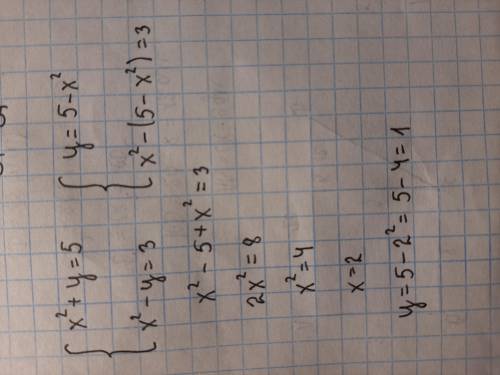 { x² + y = 5 { y = 5 - x²
x² - y = 3 x² - (5 - x²) = 3
x² - 5 + x² = 3
2x² = 8
x² = 4
x = 2
y = 5 - 2² = 5 - 4 = 1